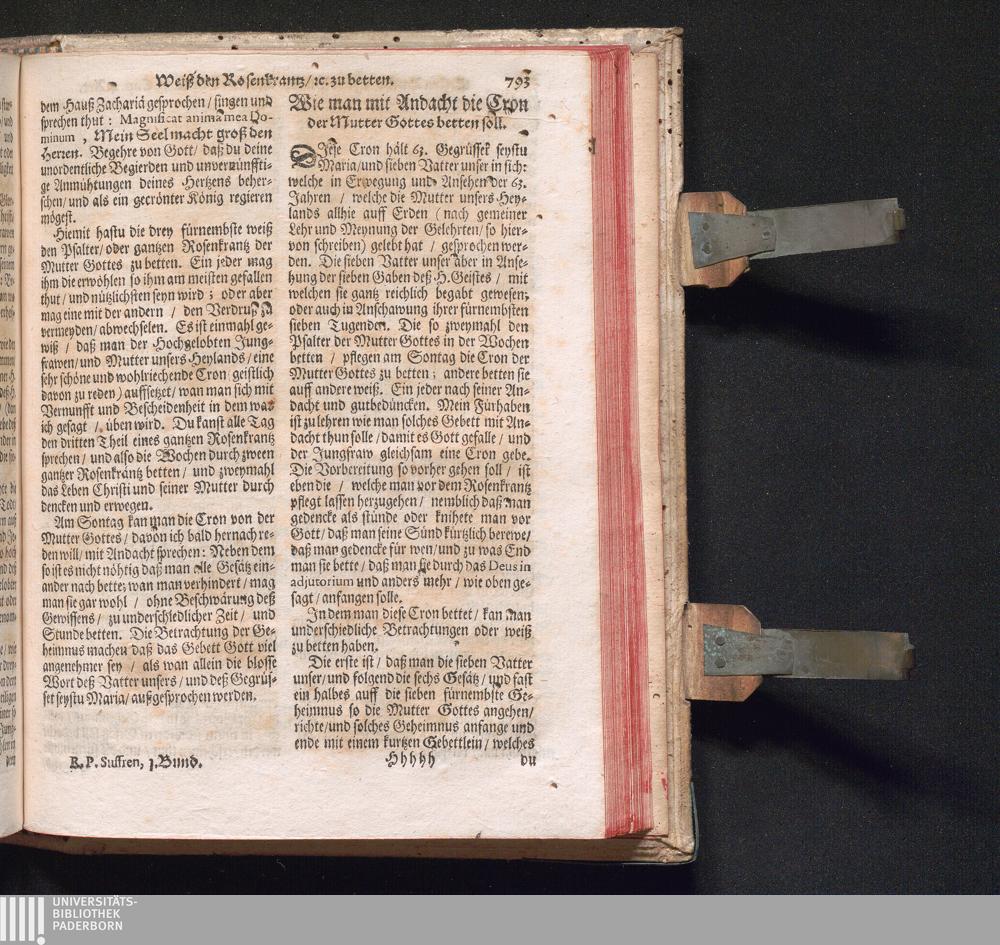 Weiß den Rosenkrantz / ꝛc. zu betten. 793
dem Hauß Zachariä gesprochen / singen und
sprechen thut : Magnificat anima mea Do-
minum , Mein Seel macht groß den
Herren. Begehre von Gott / daß du deine
unordentliche Begierden und unvernünffti-
ge Anmühtungen deines Hertzens beher-
schen / und als ein gecrönter König regieren
mögest.
Hiemit hastu die drey fürnembste weiß
den Psalter / oder gantzen Rosenkrantz der
Mutter Gottes zu betten. Ein jeder mag
ihm die erwöhlen so ihm am meisten gefallen
thut / und nützlichsten seyn wird ; oder aber
mag eine mit der andern / den Verdruß zu
vermeyden / abwechselen. Es ist einmahl ge-
wiß / daß man der Hochgelobten Jung-
frawen / und Mutter unsers Heylands / eine
sehr schöne und wohlriechende Cron (geistlich
davon zu reden) auffsetzet / wan man sich mit
Vernunfft und Bescheidenheit in dem was
ich gesagt / üben wird. Du kanst alle Tag
den dritten Theil eines gantzen Rosenkrantz
sprechen / und also die Wochen durch zween
gantzer Rosenkräntz betten / und zweymahl
das Leben Christi und seiner Mutter durch
dencken und erwegen.
Am Sontag kan man die Cron von der
Mutter Gottes / davon ich bald hernach re-
den will / mit Andacht sprechen : Neben dem
so ist es nicht nöhtig daß man alle Gesätz ein-
ander nach bette; wan man verhindert / mag
man sie gar wohl / ohne Beschwärung deß
Gewissens / zu underschiedlicher Zeit / und
Stunde betten. Die Betrachtung der Ge-
heimnus machen daß das Gebett Gott viel
angenehmer sey / als wan allein die blosse
Wort deß Vatter unsers / und deß Gegrüs-
set seystu Maria / außgesprochen werden.
R. P. Suffren, 1. Bund.
Wie man mit Andacht die Cron
der Mutter Gottes betten soll.
Diese Cron hält 63. Gegrüsset seystu
Maria / und sieben Vatter unser in sich:
welche in Erwegung und Ansehen der 63.
Jahren / welche die Mutter unsers Hey-
lands allhie auff Erden (nach gemeiner
Lehr und Meynung der Gelehrten / so hier-
von schreiben) gelebt hat / gesprochen wer-
den. Die sieben Vatter unser aber in Anse-
hung der sieben Gaben deß H. Geistes / mit
welchen sie gantz reichlich begabt gewesen;
oder auch in Anschawung ihrer fürnembsten
sieben Tugenden. Die so zweymahl den
Psalter der Mutter Gottes in der Wochen
betten / pflegen am Sontag die Cron der
Mutter Gottes zu betten ; andere betten sie
auff andere weiß. Ein jeder nach seiner An-
dacht und gutbedüncken. Mein Fürhaben
ist zu lehren wie man solches Gebett mit An-
dacht thun solle / damit es Gott gefalle / und
der Jungfraw gleichsam eine Cron gebe.
Die Vorbereitung so vorher gehen soll / ist
eben die / welche man vor dem Rosenkrantz
pflegt lassen herzugehen / nemblich daß man
gedencke als stünde oder knihete man vor
Gott / daß man seine Sünd kürtzlich berewe/
daß man gedencke für wen / und zu was End
man sie bette / daß man sie durch das Deus in
adjutorium und anders mehr / wie oben ge-
sagt / anfangen solle.
In dem man diese Cron bettet / kan man
underschiedliche Betrachtungen oder weiß
zu betten haben.
Die erste ist / daß man die sieben Vatter
unser / und folgend die sechs Gesätz / und fast
ein halbes auff die sieben fürnembste Ge-
heimnus so die Mutter Gottes angehen /
richte / und solches Geheimnus anfange und
ende mit einem kurtzen Gebettlein / welches
Hhhhh du
UNIVERSITÄTS-
BIBLIOTHEK
PADERBORN